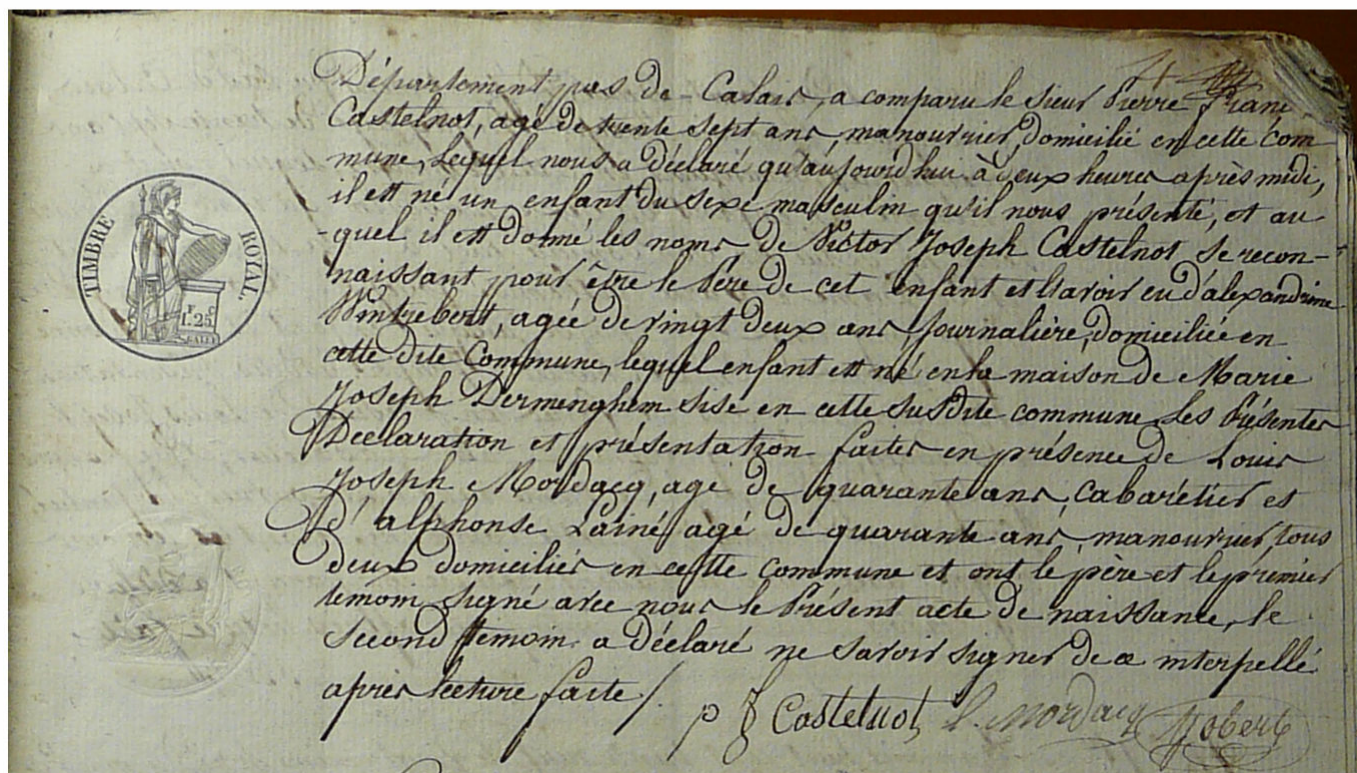 TIMBRE ROYAL.
Fr. C.
1.25
Département pas de-Calais, a comparu le sieur Pierre-Franc
Castelnot, agé de trente sept ans manouvrier, domicilié en cette com
mune, Lequel nous a déclaré qu'aujourd'hui à deux heures après midi,
il est né un enfant du sexe masculin qu'il nous présenté, et au
-quel il est donné les noms de Victor Joseph Castelnot se recon-
naissant pour être le Père de cet enfant et l'avoir eu d'alexandrine
Wintrebert, agée de vingt deux ans, Journalière, domiciliée en
cette dite Commune, lequel enfant est né en la maison de Marie
Joseph Dermenghem sise en cette susdite commune, Les Présentes
Déclaration et présentation faites en présence de Louis
Joseph Mordacq, agé de quarante ans, cabaretier et
D'alphonse Lainé, agé de quarante ans, manouvrier, tous
deux domiciliés en cette commune et ont le père et le premier
témoin signé avec nous le Présent acte de naissance, le
Second temoin a déclaré ne savoir signer de ce interpellé
après lecture faite /.
p f Castelnot, L. Mordacq Robert